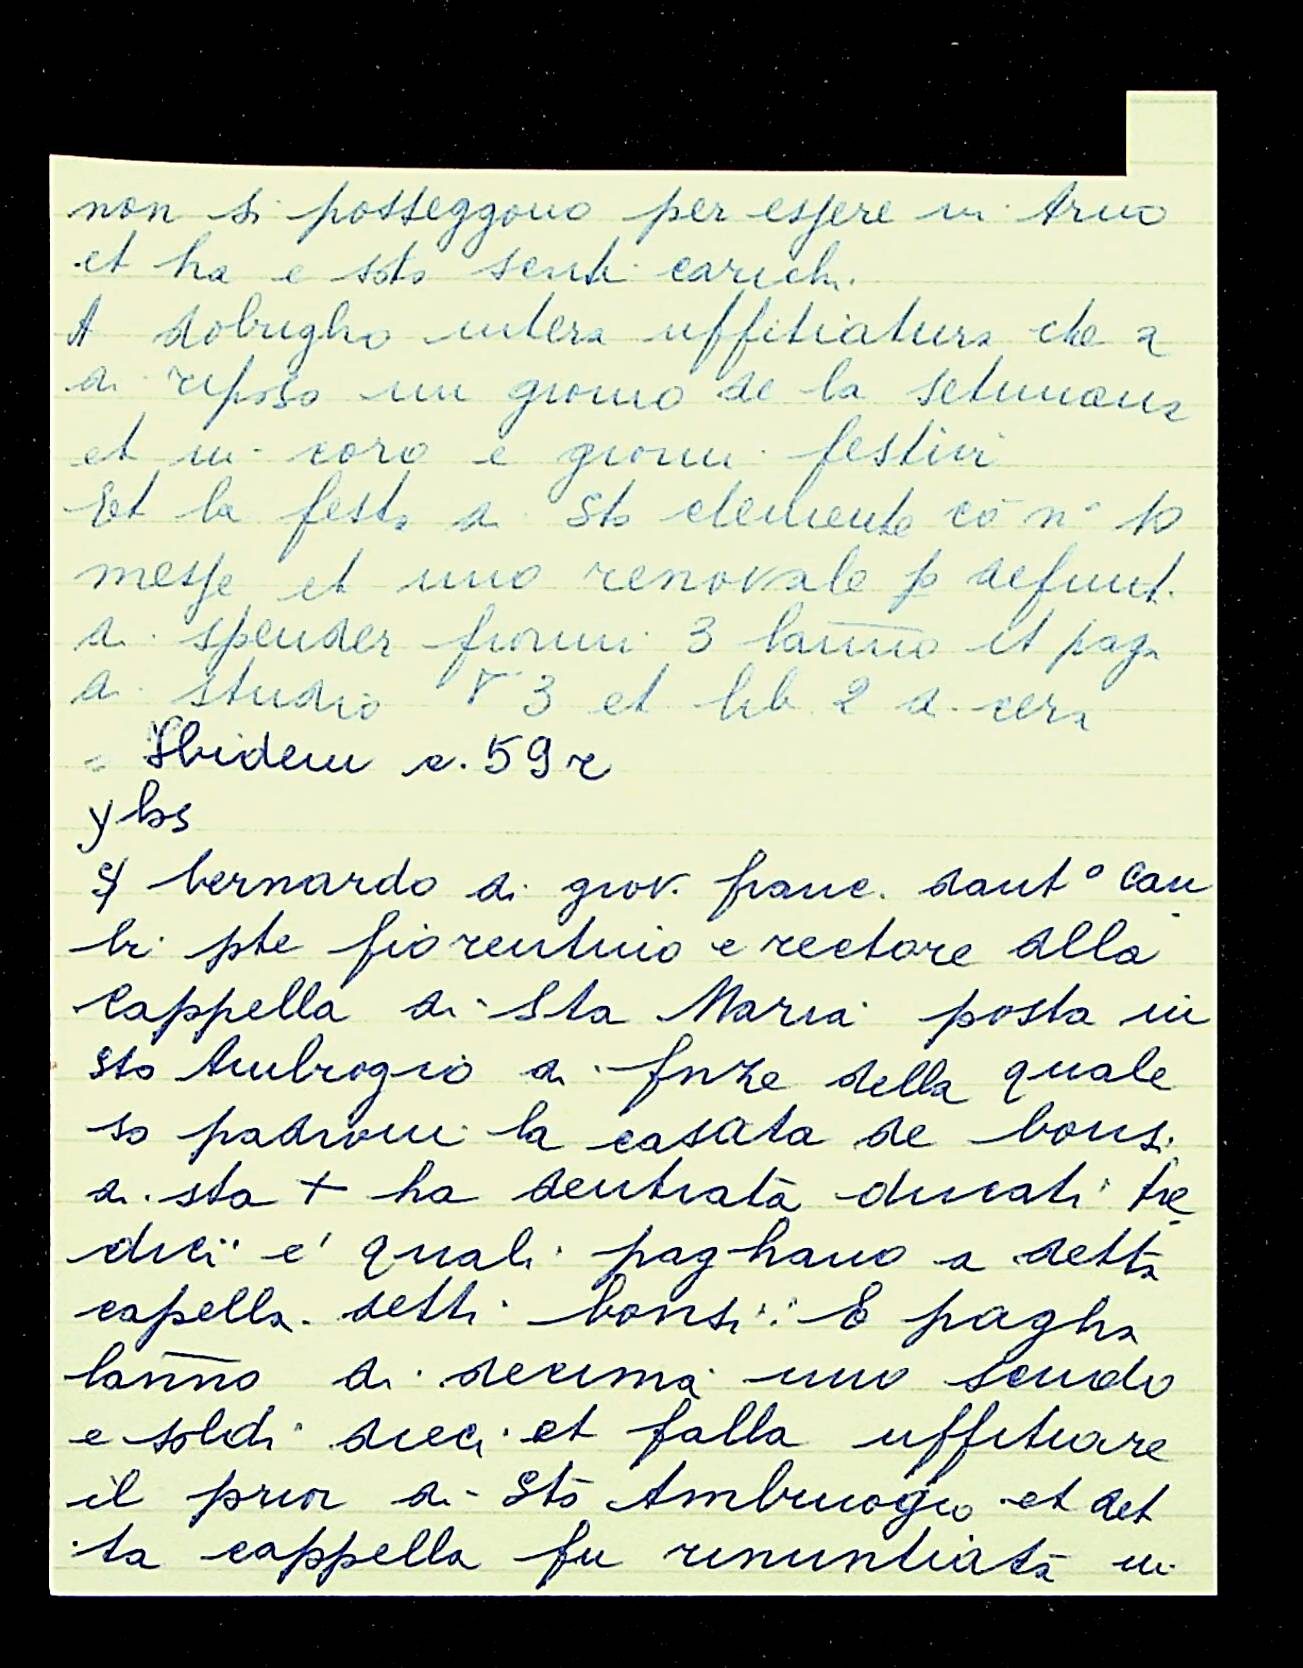 non si posseggono per essere in Arno
et ha e soto scriti carichi.
A dobrigho intera uffitiatura che a
di riposo un giorno de la setimana
et in coro e giorni festivi
Et la festa di Sto clemente cō n° 10
messe et uno renovale p defunt.
di spender fiorini 3 lanno et paga
di studio 3 et lib 2 di cera
Ibidem c. 59 r
yhs
S bernardo di giov. franc. dant° Cam
bi pte fiorentino e rectore alla
Cappella di Sta Maria posta in
sto Ambrogio di fnze della quale
so padroni la casata de bonsi
di sta + ha dentrata ducati tre
dici e' quali paghano a detta
capella detti bonsi: E pagha
lanno di decima uno scudo
e soldi dieci et falla uffitiare
il prior di Sto Ambruogio et det
ta cappella fu renuntiata in